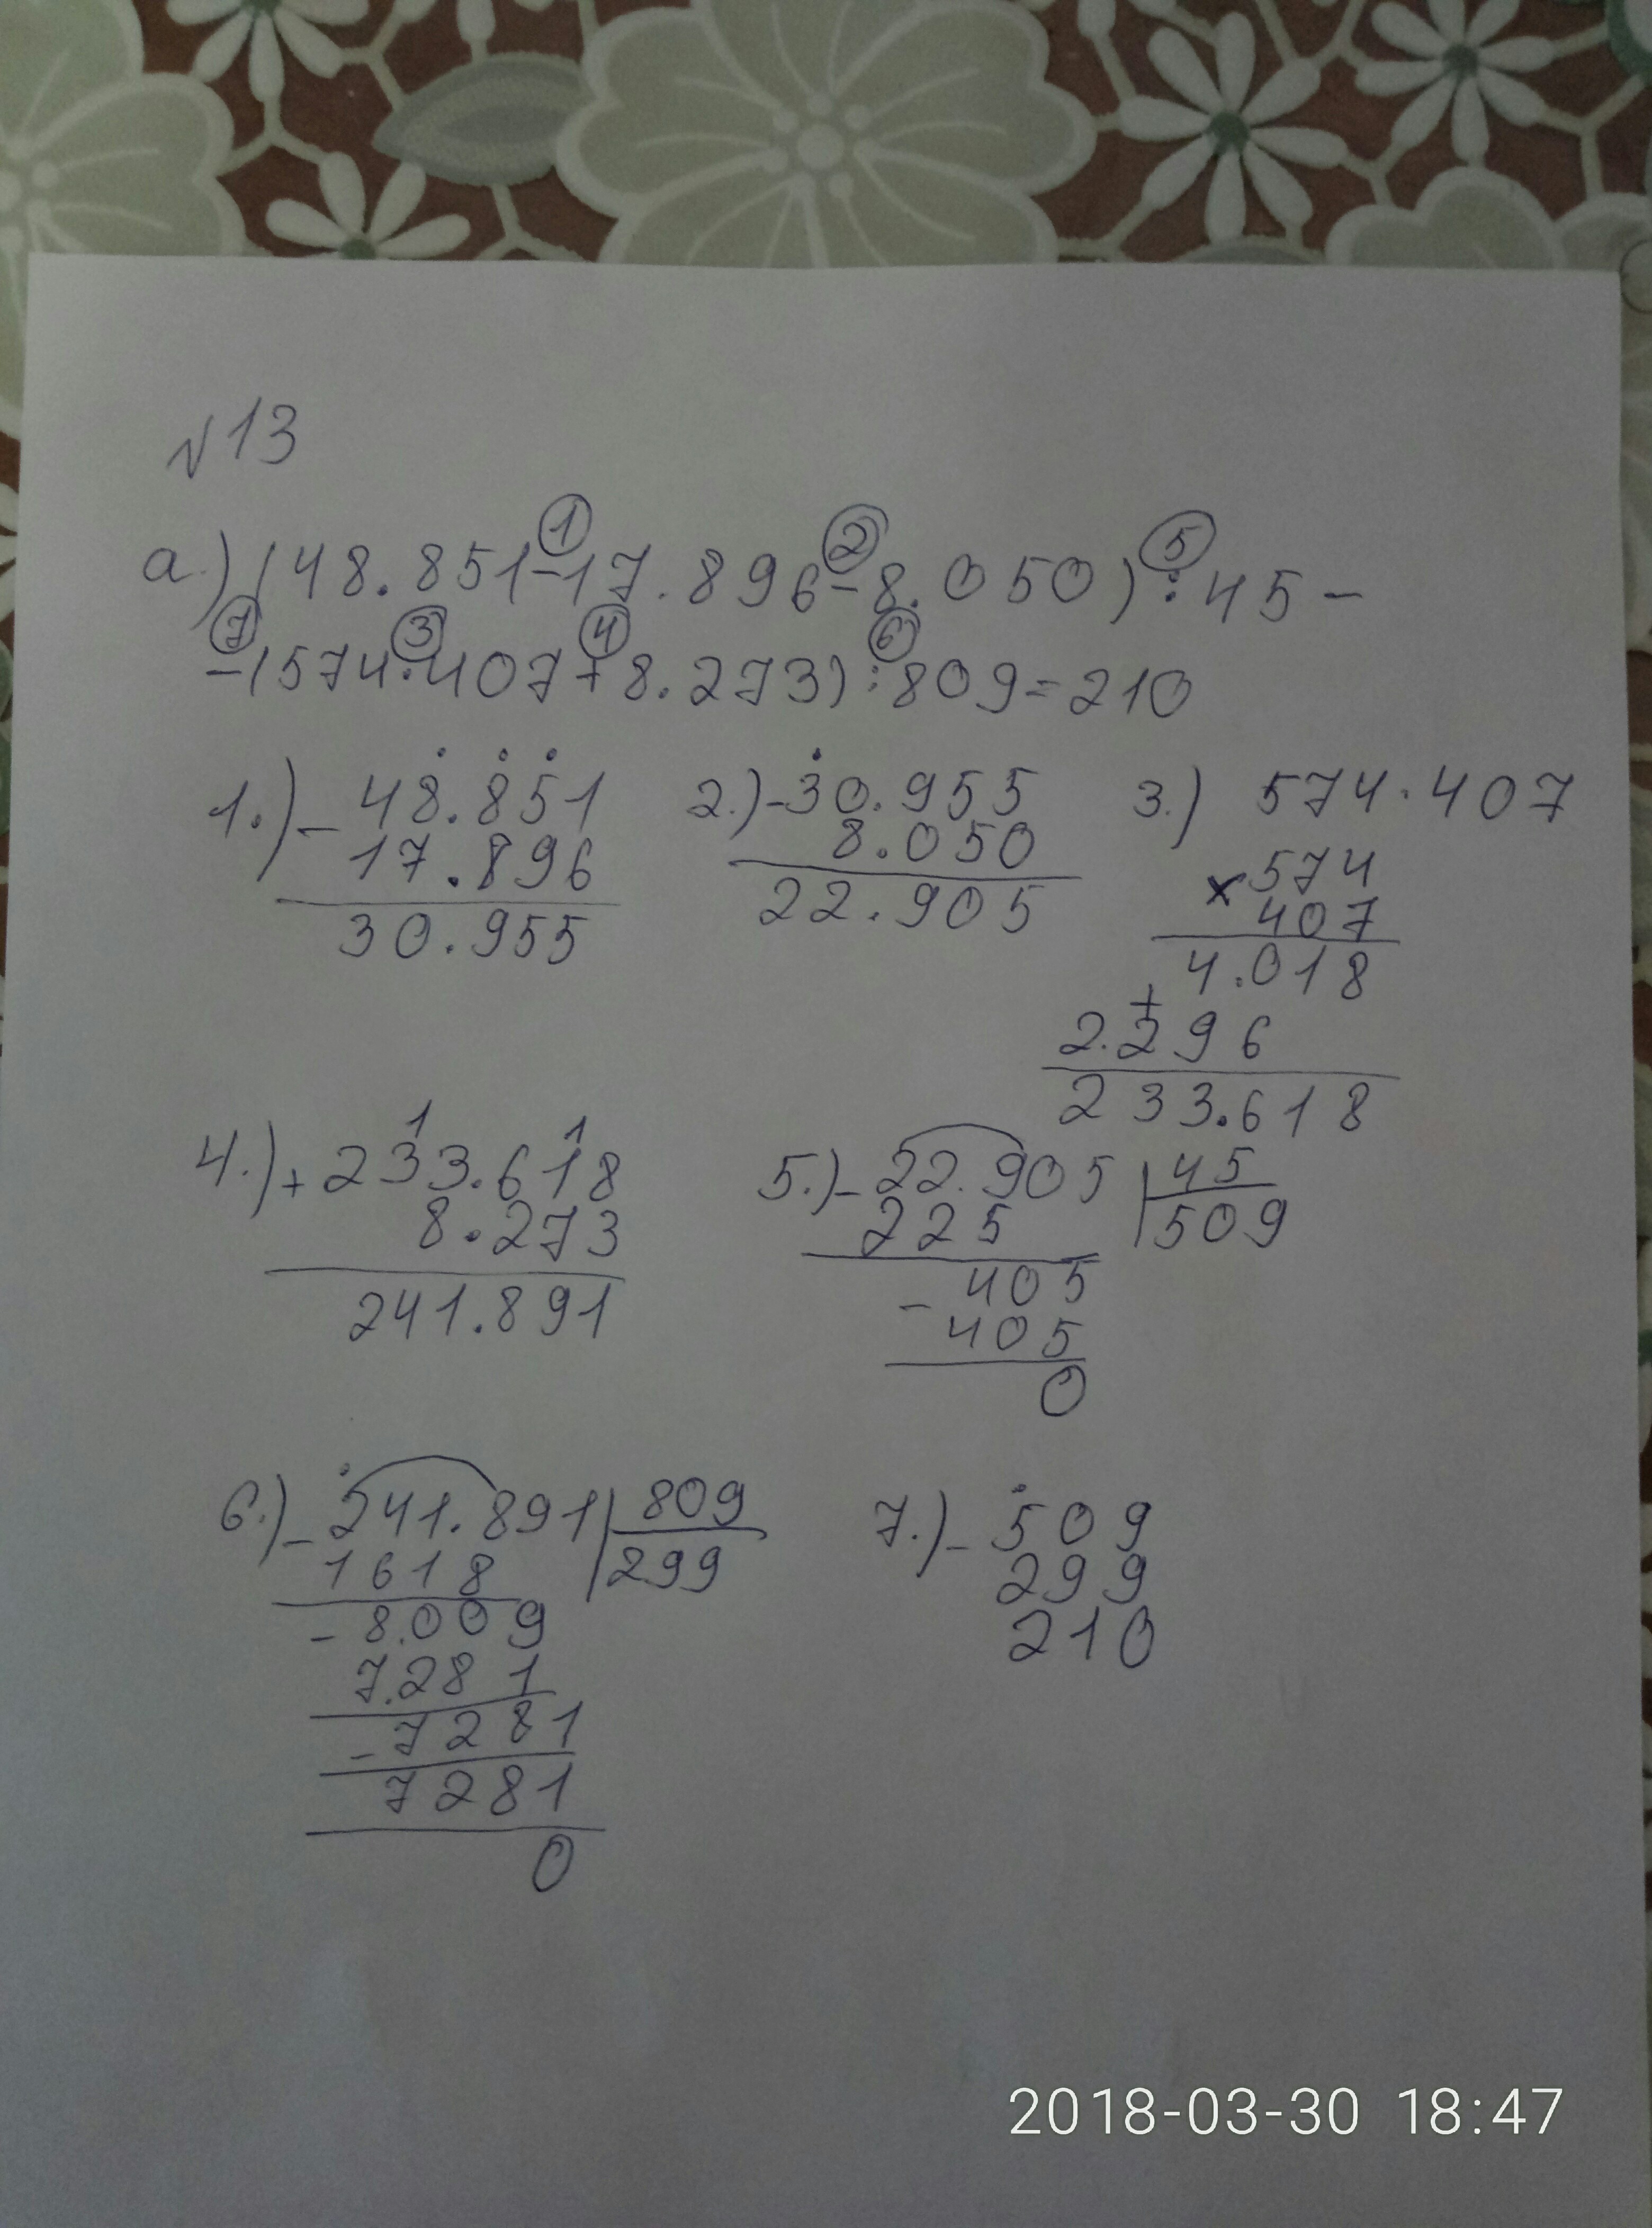 №13
а.) (48.851-17.896-8.050):45-
-(574·407+8.273):809=210
1 2 5
7 3 4 6
1.) - 48.851
17.896
30.955
2.) - 30.955
8.050
22.905
3.) 574·407
x 574
407
4.018
+
2.296
233.618
4.) + 233.618
1 1
8.273
241.891
5.) - 22.905 45
225 509
- 405
405
0
6.) - 241.891 809
1618 299
- 8.009
7.281
- 7281
7281
0
7.) - 509
299
210
2018-03-30 18:47